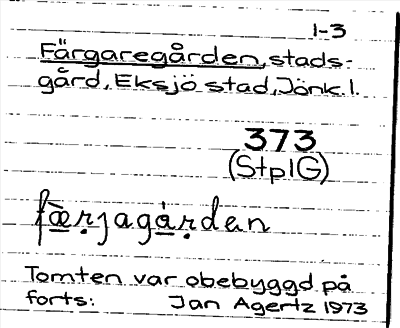 1-3
Färgaregården, stads-
gård, Eksjö stad, Jönk. l.
373
(StplG)
fæ̱rjagå̱rdan
Tomten var obebyggd på
forts: Jan Agertz 1973